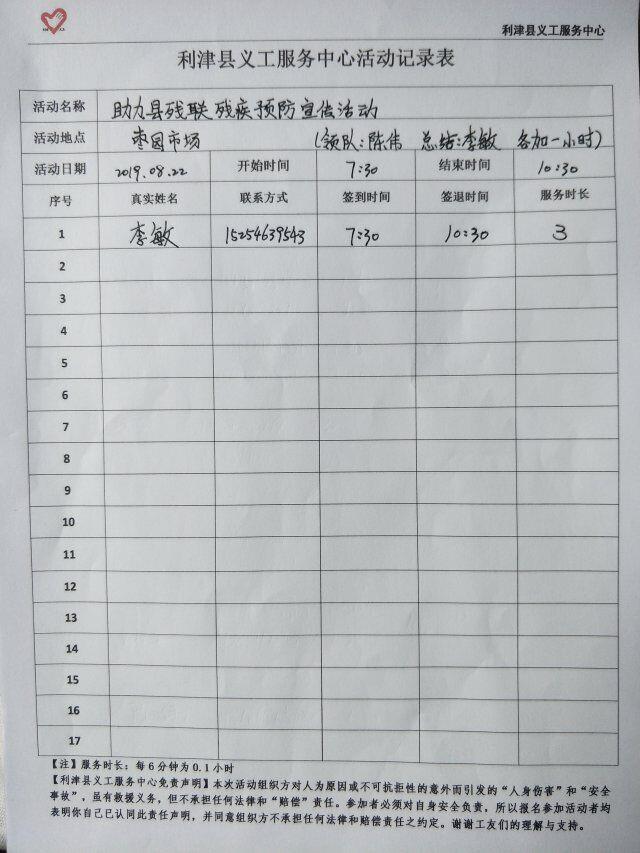 利津县义工服务中心
利津县义工服务中心活动记录表
活动名称 助力县残联残疾预防宣传活动
活动地点 枣园市场 (领队:陈伟 总结:李敏 各加一小时)
活动日期 2019.08.22 开始时间 7:30 结束时间 10:30
序号 真实姓名 联系方式 签到时间 签退时间 服务时长
1 李敏 15254639543 7:30 10:30 3
2
3
4
5
6
7
8
9
10
11
12
13
14
15
16
17
【注】服务时长：每6分钟为0.1小时
【利津县义工服务中心免责声明】本次活动组织方对人为原因或不可抗拒性的意外而引发的“人身伤害”和“安全
事故”，虽有救援义务，但不承担任何法律和“赔偿”责任。参加者必须对自身安全负责，所以报名参加活动者均
表明你自己已认同此责任声明，并同意组织方不承担任何法律和赔偿责任之约定。谢谢工友们的理解与支持。